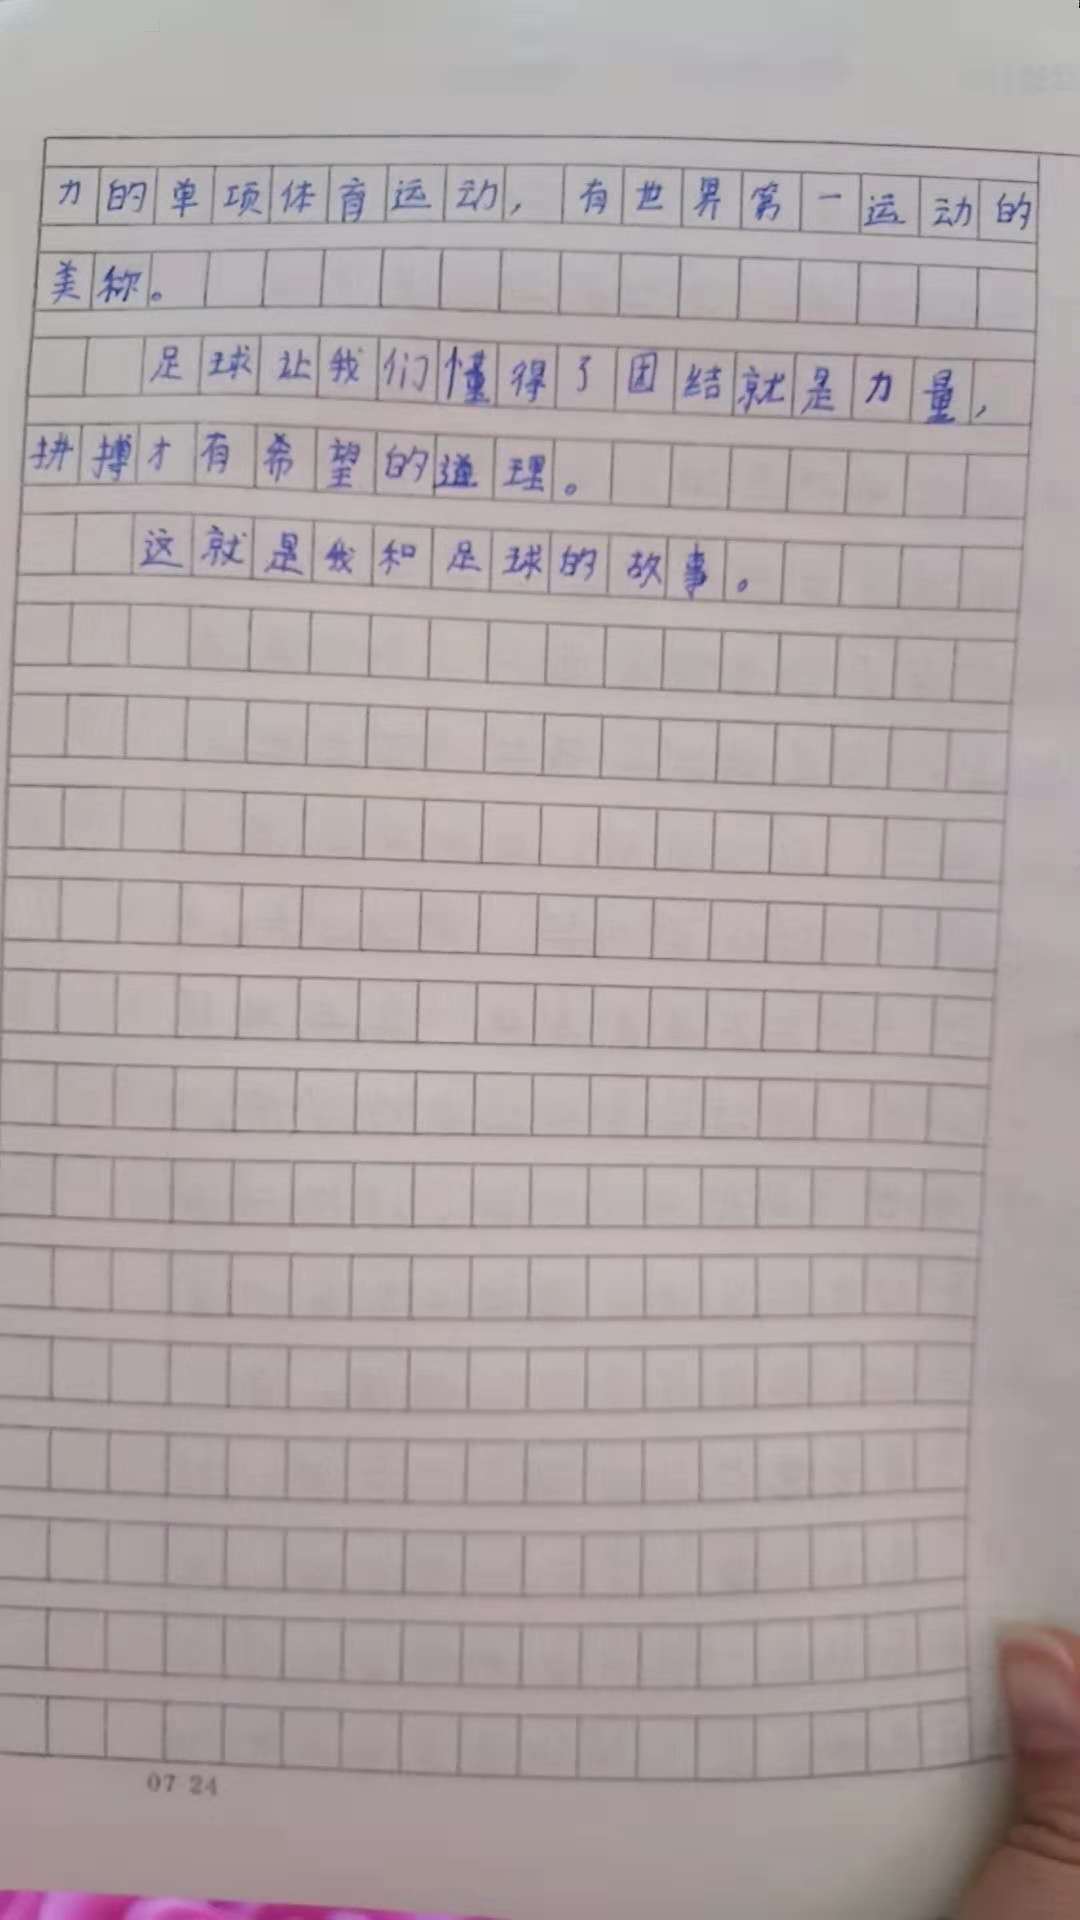 力的单项体育运动，有世界第一运动的
美称。
足球让我们懂得了团结就是力量，
拼搏才有希望的道理。
这就是我和足球的故事。
07 24